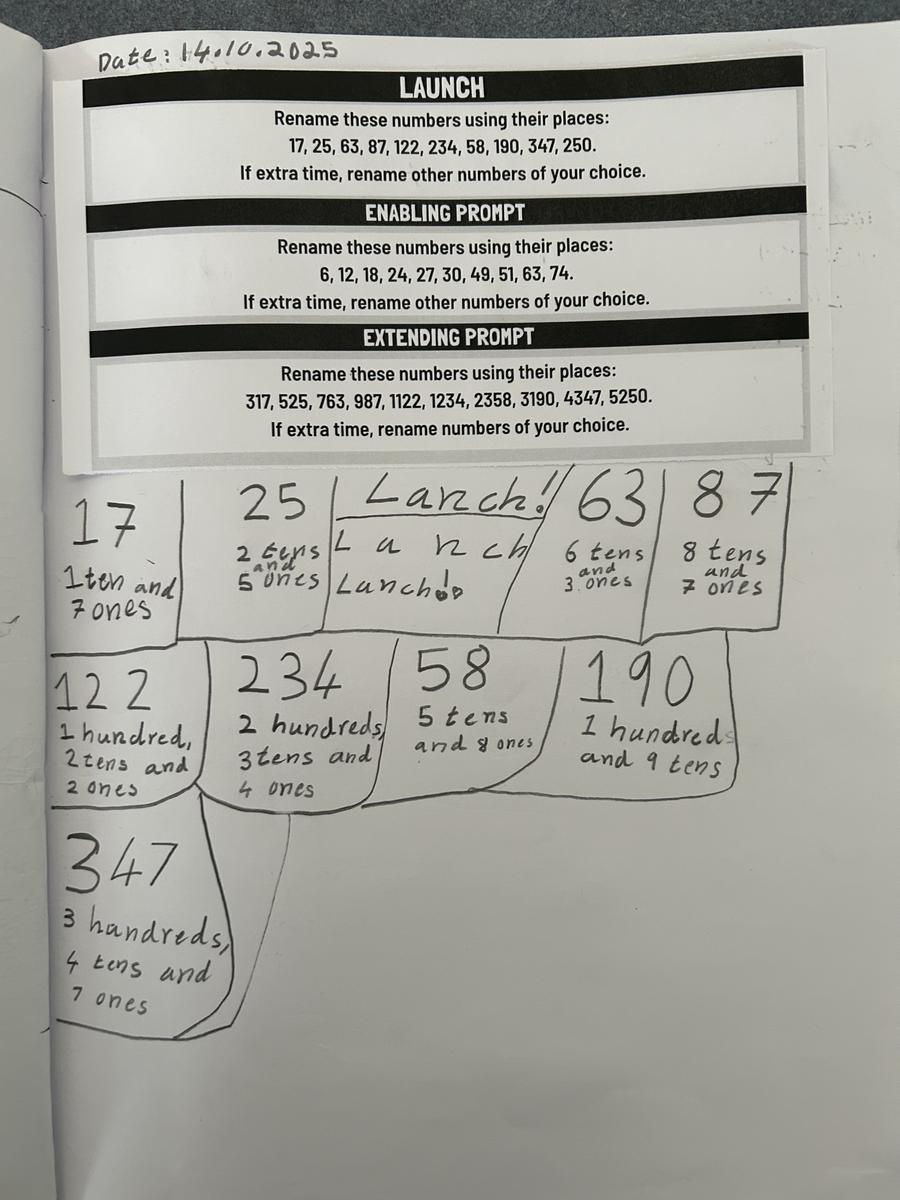 Date: 14.10.2025
LAUNCH
Rename these numbers using their places:
17, 25, 63, 87, 122, 234, 58, 190, 347, 250.
If extra time, rename other numbers of your choice.
ENABLING PROMPT
Rename these numbers using their places:
6, 12, 18, 24, 27, 30, 49, 51, 63, 74.
If extra time, rename other numbers of your choice.
EXTENDING PROMPT
Rename these numbers using their places:
317, 525, 763, 987, 1122, 1234, 2358, 3190, 4347, 5250.
If extra time, rename numbers of your choice.
17
1 ten and
7 ones
25
2 tens
and
5 ones
Lanch!
Lanch
Lunch!!
63
6 tens
and
3 ones
87
8 tens
and
7 ones
122
1 hundred,
2 tens and
2 ones
234
2 hundreds,
3 tens and
4 ones
58
5 tens
and 8 ones
190
1 hundreds
and 9 tens
347
3 handreds,
4 tens and
7 ones